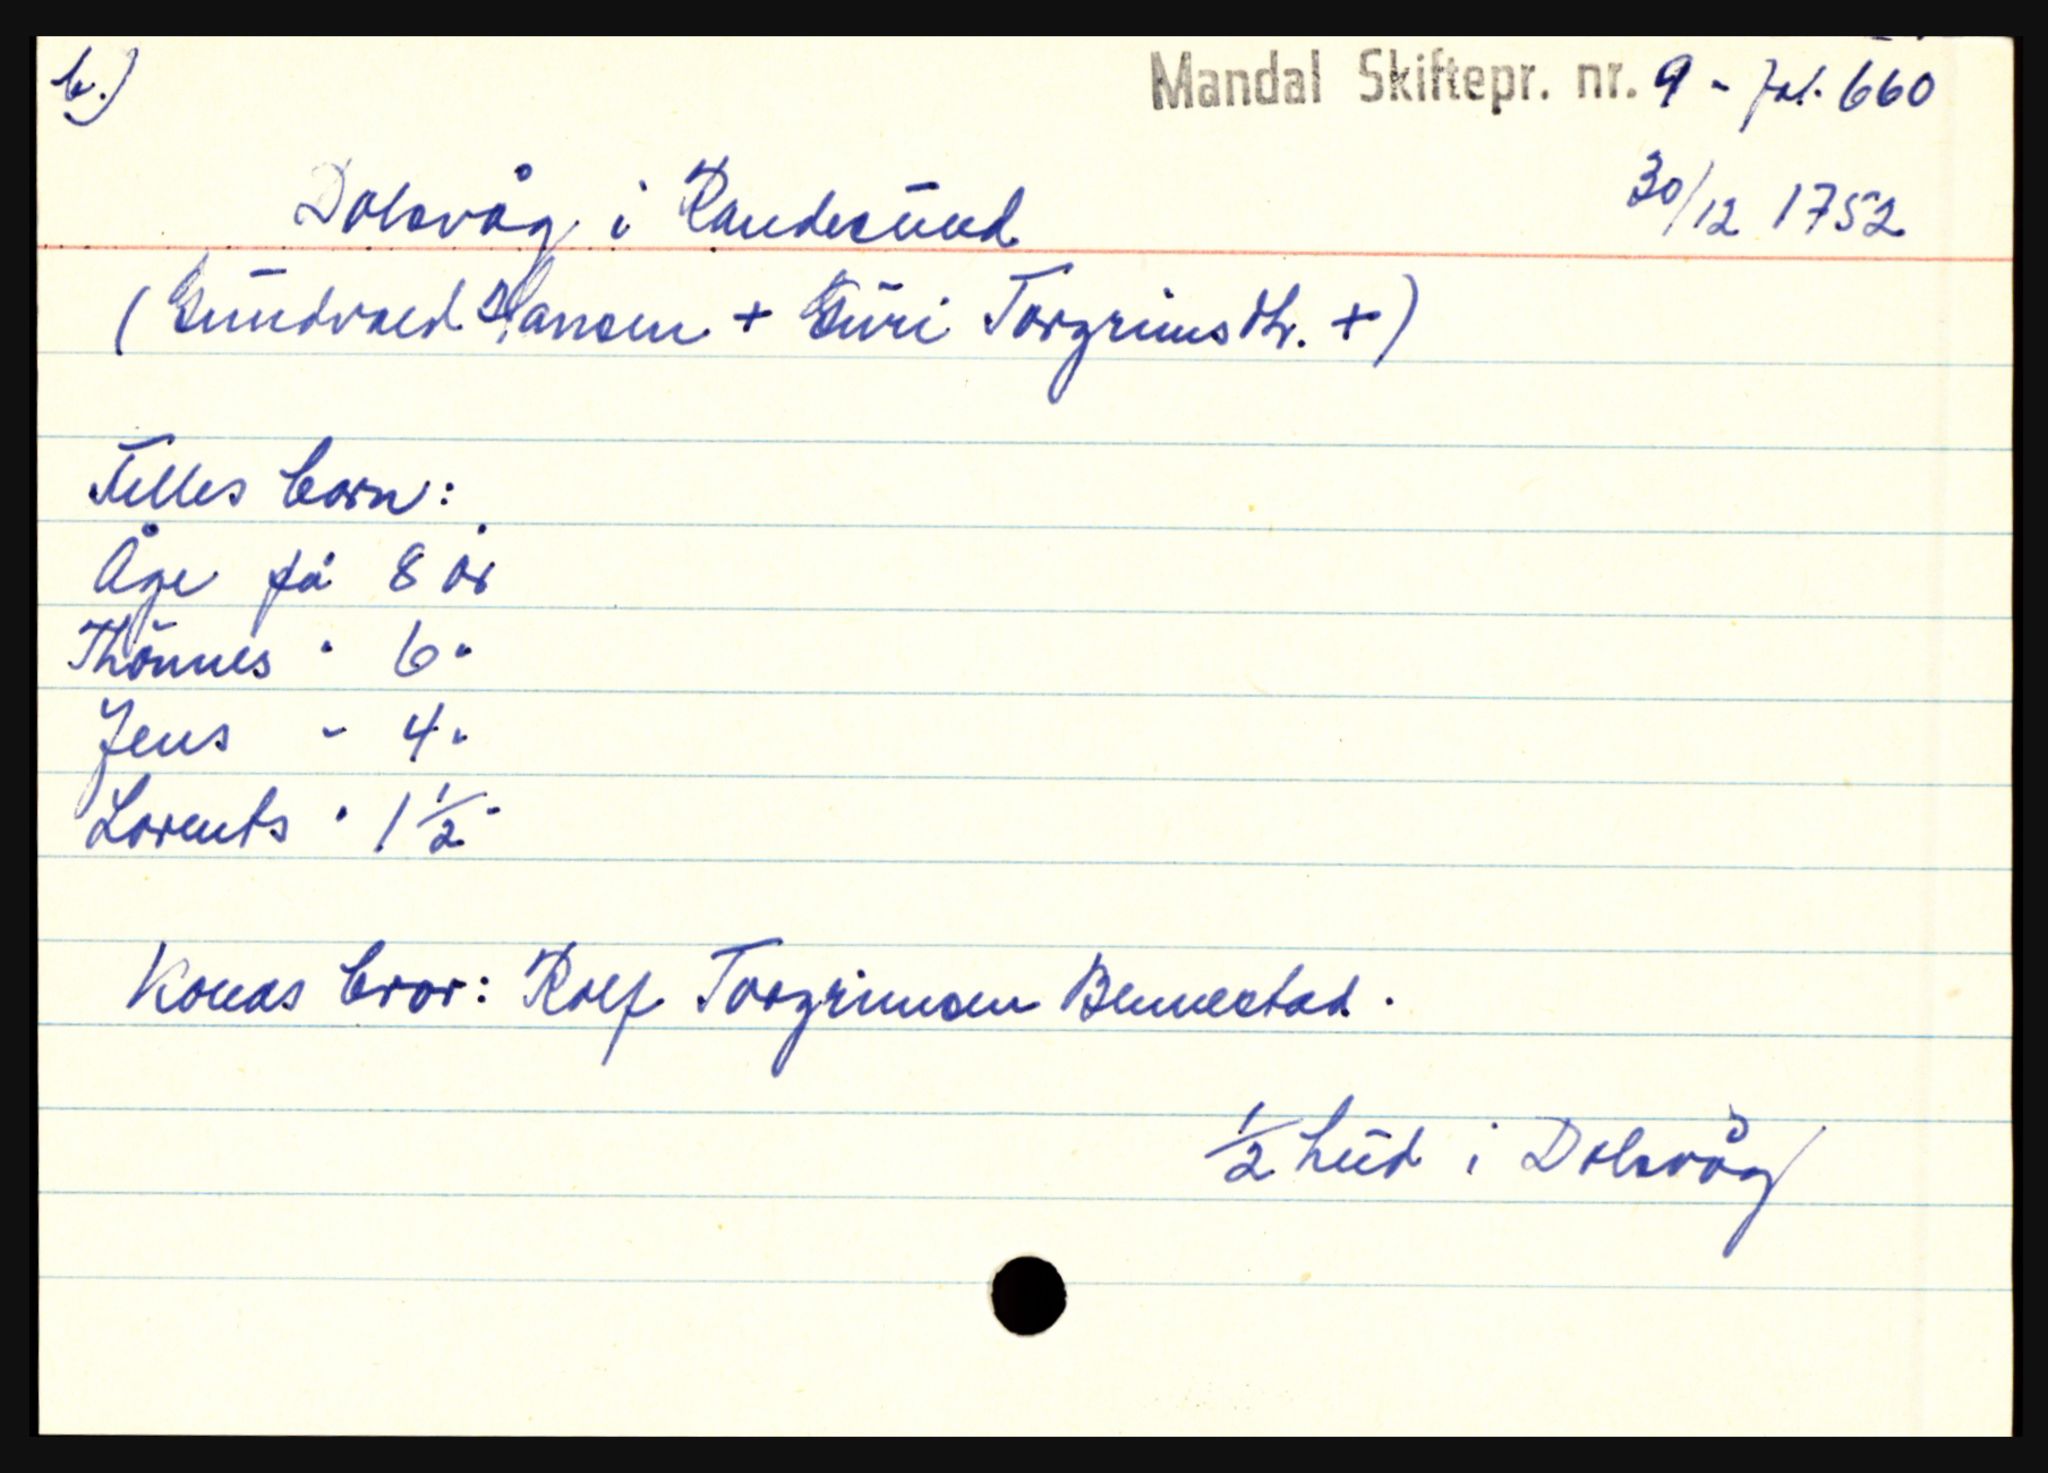 b.) Mandal Skiftepr. nr. 9 - fol. 660
Dolsvåg i Randesund 30/12 1752
(Gundvald Hansen + Guri Torgrimsdtr. +)
Felles born:
Åge på 8 år
Thönnes " 6 "
Jens - 4 "
Lorents " 1 1/2 "
Konas bror: Rolf Torgrimsen Bennestad.
1/2 hud i Dolsvåg